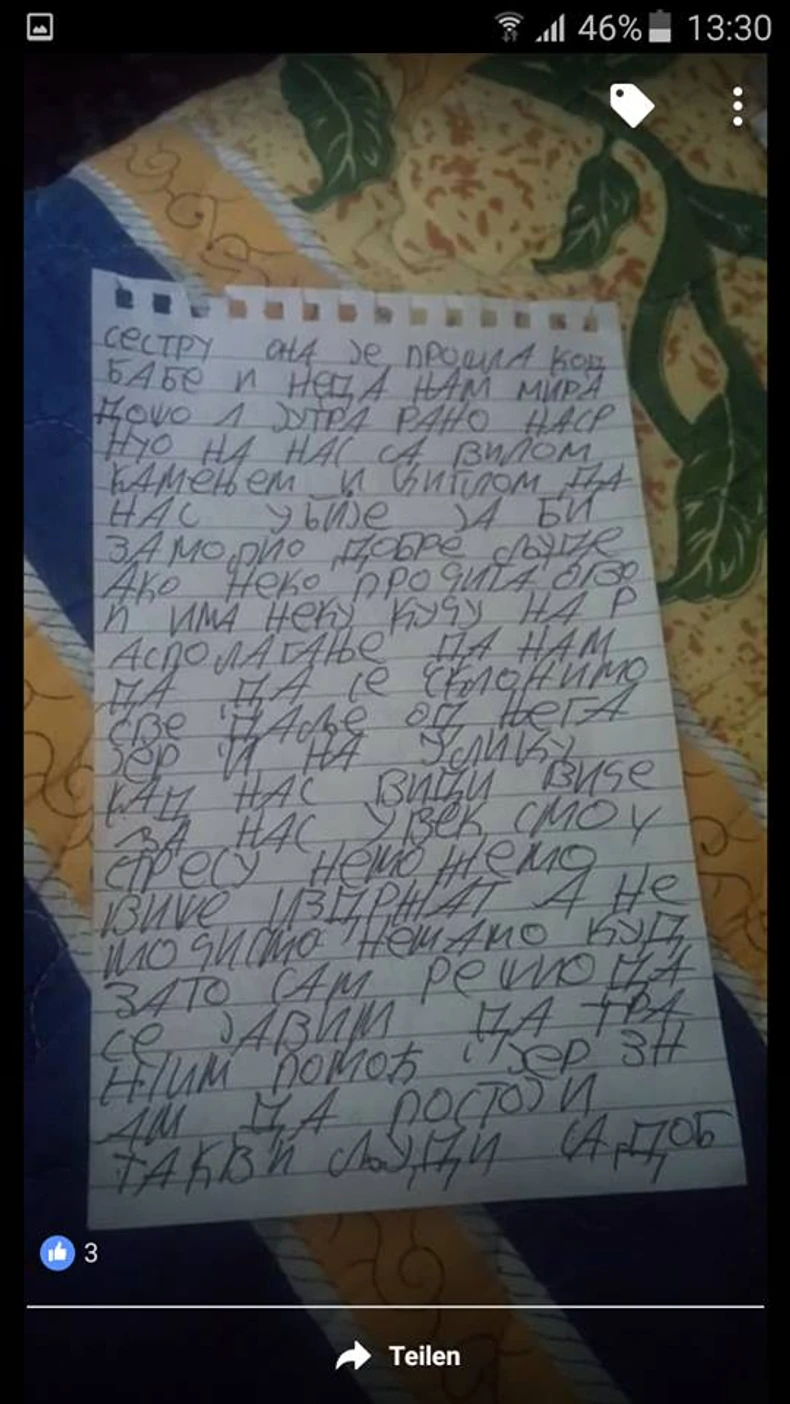 46% 13:30
сестру она је прошла код
бабе и неда нам мира
дошо ујутра рано наср
нуо на нас са вилом
камењем и циглом да
нас убије ја би
замолио добре људе
Ако неко прочита ово
и има неку кучу на р
асполагање да нам
да да се склонимо
све даље од њега
јер и на улицу
кад нас види виче
за нас увек смо у
стресу неможемо
више издржат а не
мочисмо немамо куд
зато сам решио да
се јавим да тра
жим помоћ јер зн
ам да постоји
такви људи са доб
3
Teilen